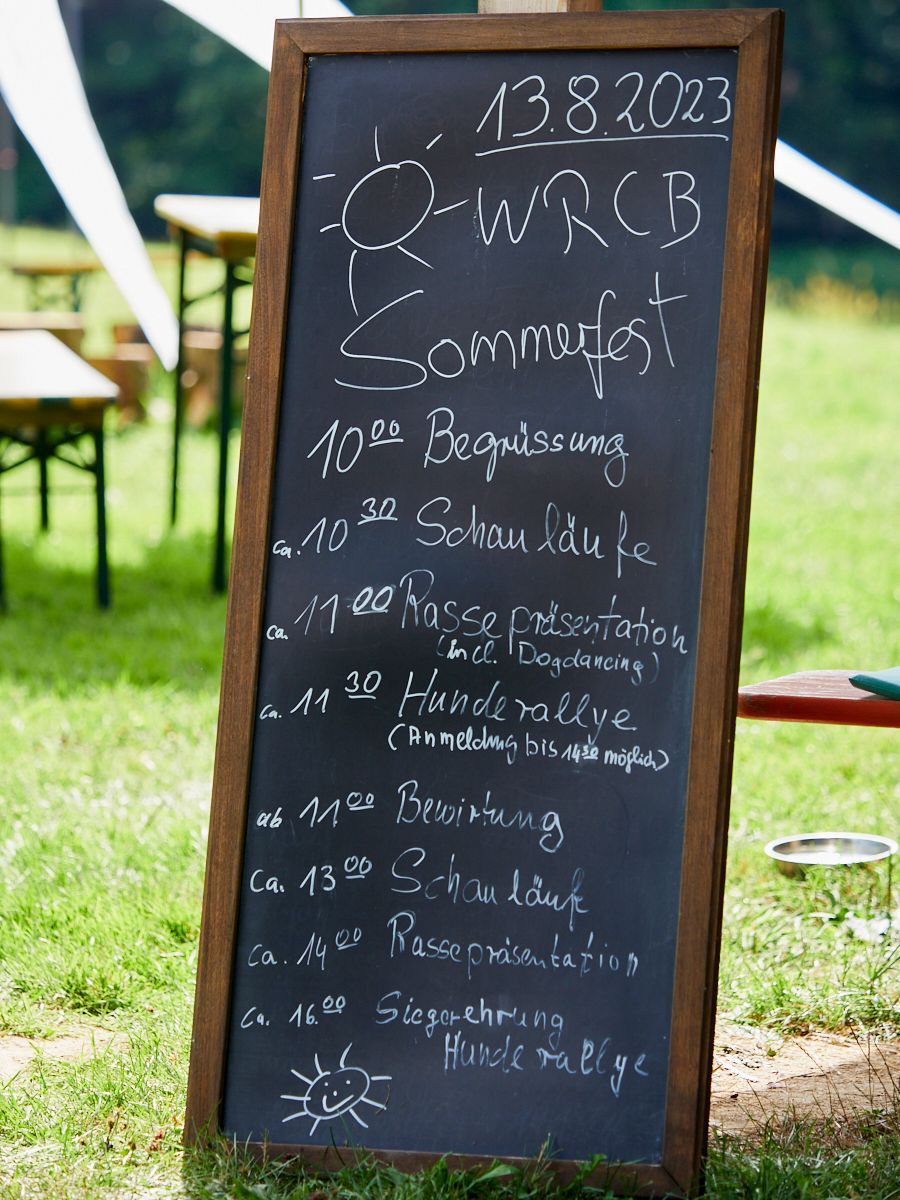 13.8.2023
WRCB
Sommerfest
10 00 Begrüssung
ca. 10 30 Schauläufe
ca. 11 00 Rassepräsentation
(incl. Dogdancing)
ca. 11 30 Hunderallye
(Anmeldung bis 14 30 möglich)
ab 11 00 Bewirtung
Ca. 13 00 Schauläufe
Ca. 14 00 Rassepräsentation
Ca. 16. 00 Siegerehrung
Hunderallye